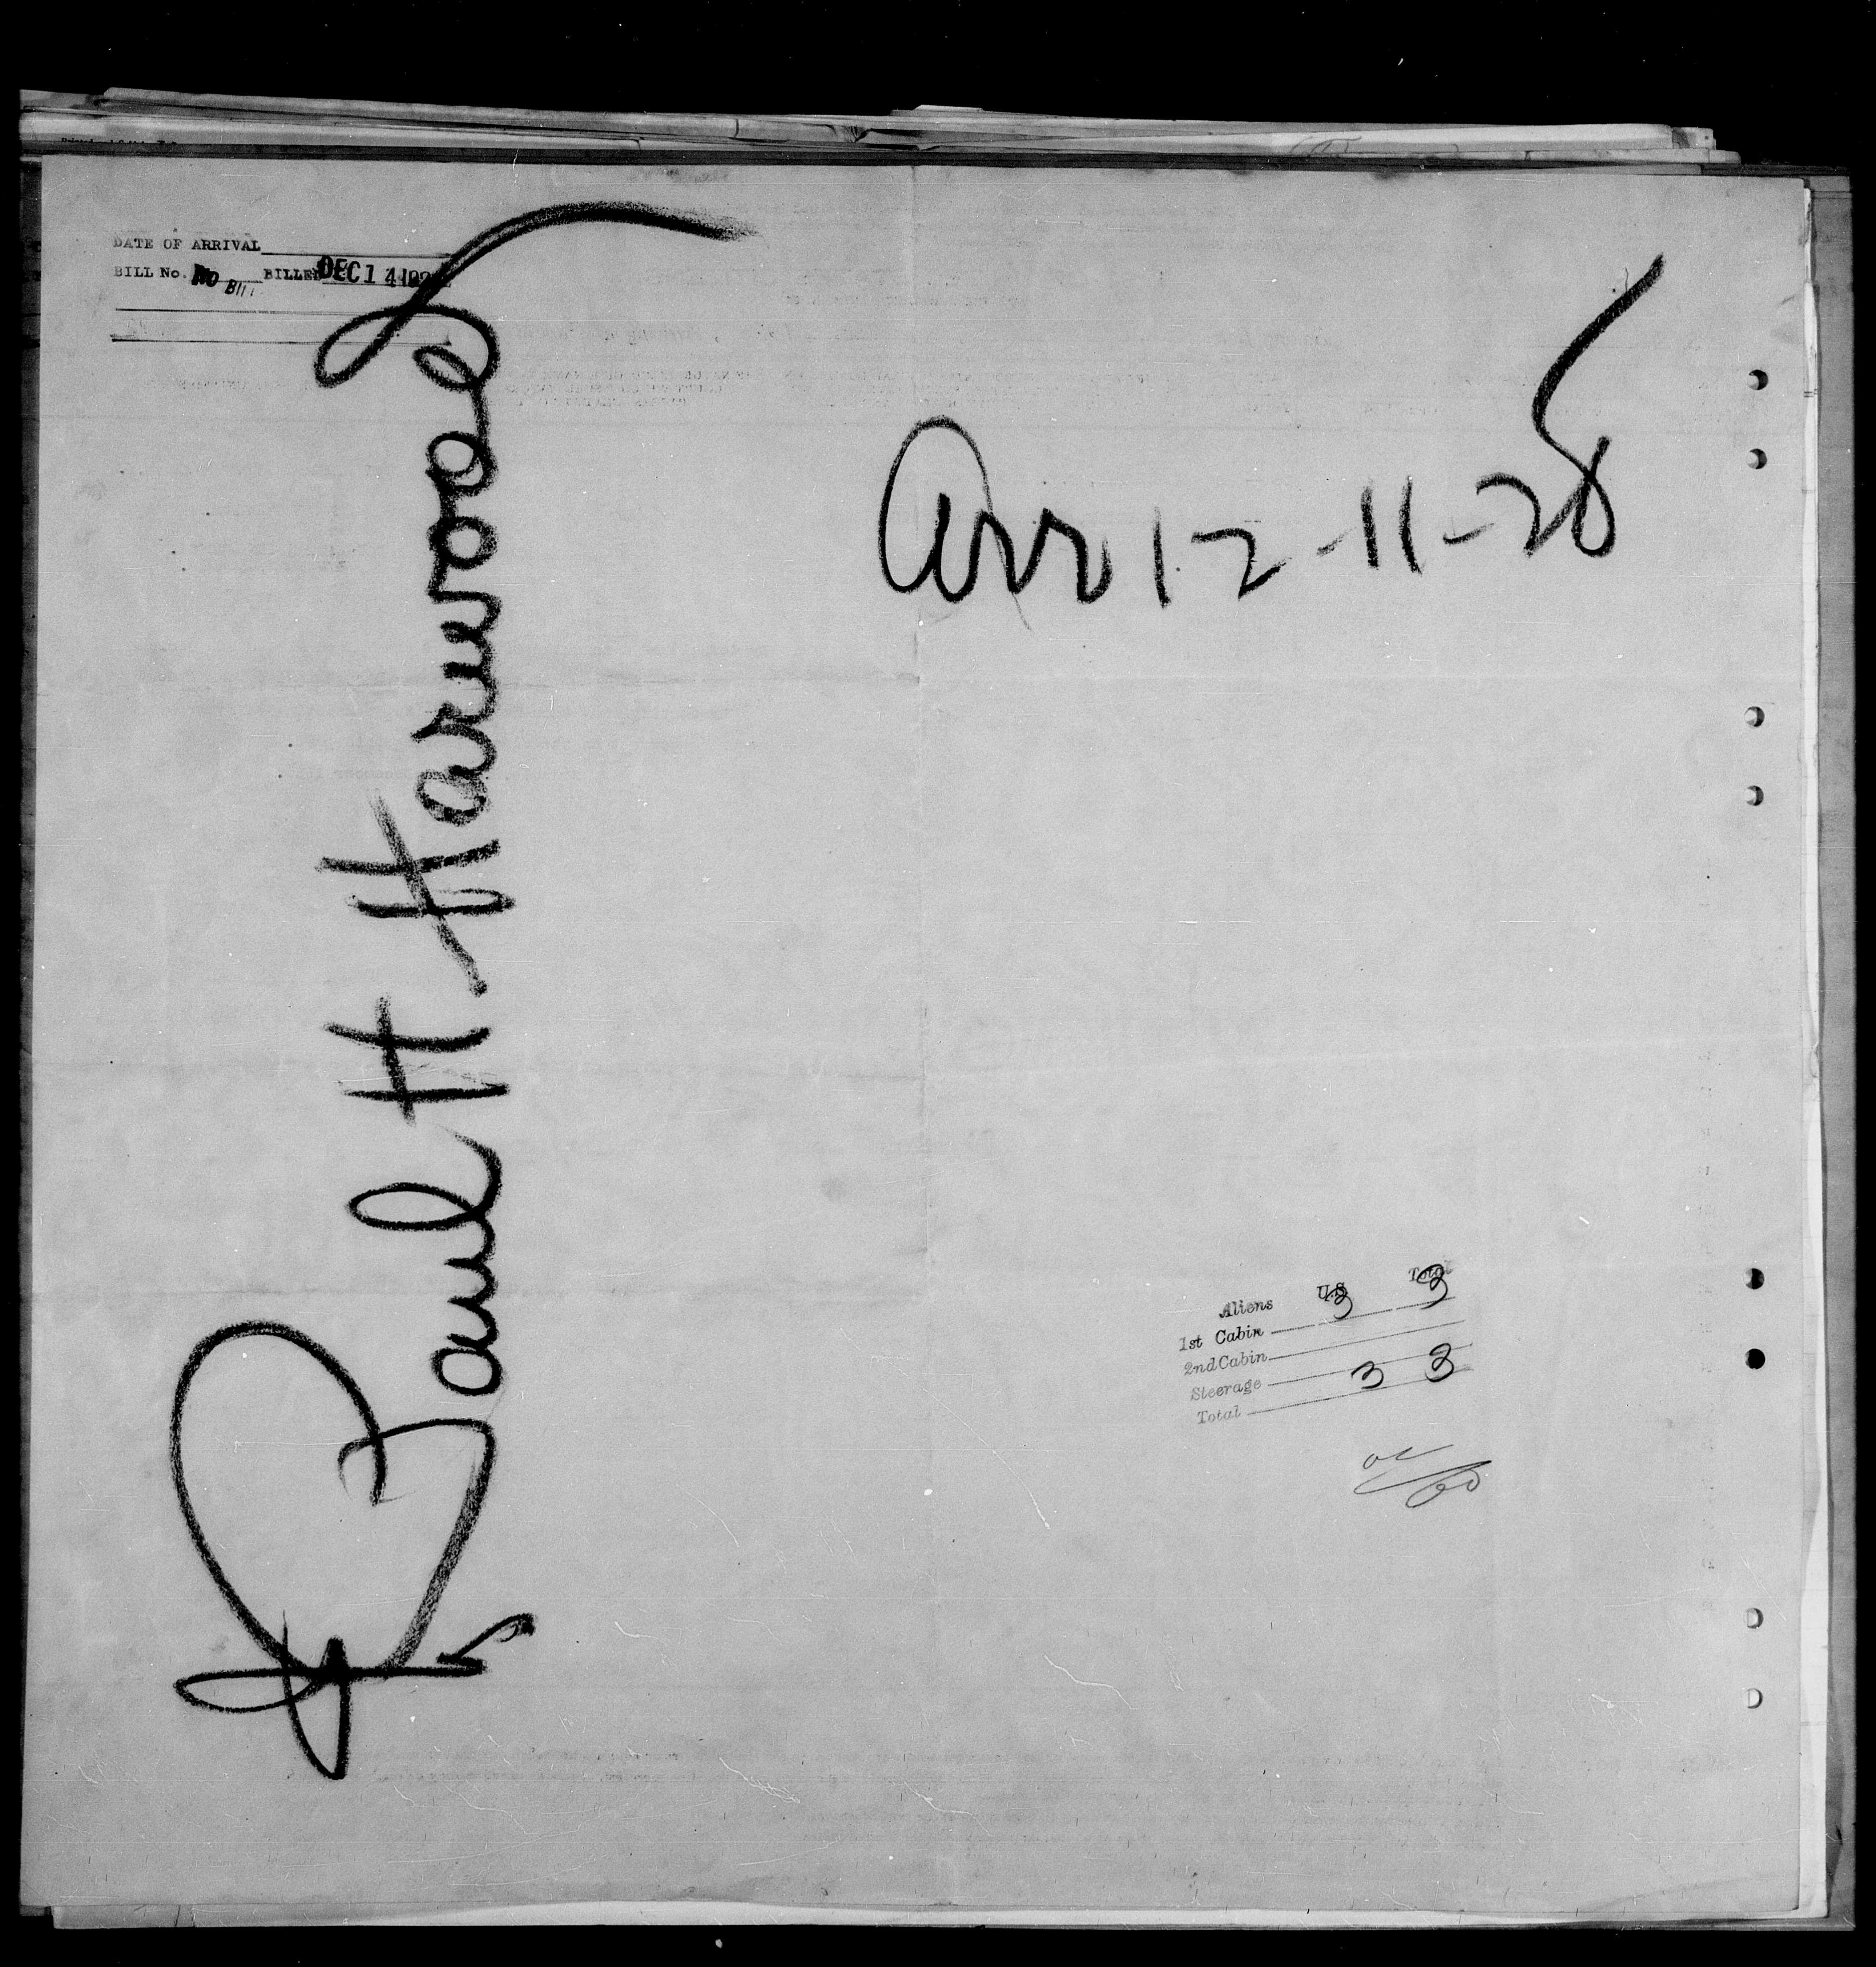 DATE OF ARRIVAL
BILL No. No Bill BILLED DEC 14 192
Paul H Harwood
Arr 12-11-28
Aliens U.S Total
1st Cabin 3 3
2nd Cabin
Steerage
Total 3 3